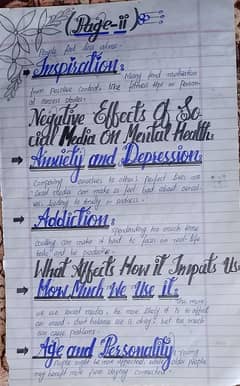 (Page-ii)
People feel less alone.
Inspiration:
Many find motivation
from positive content, like fitness tips or personal
success stories.
Negative Effects Of So-
cial Media On Mental Health:
Anxiety and Depression:
Comparing ourselves to others perfect lives on
social media can make us feel bad about oursel-
ves, leading to anxiety or sadness.
Addiction:
Spending too much time
scrolling can make it hard to focus on real life
tasks and be productive.
What Affects How it Impacts Us
How Much We Use it:
The more
we use social media, the more likely it is to affect
our mood - short balance use is okay, but too much
can cause problems.
Age and Personality:
Young
people might be more affected, while older people
may benefit more from staying connected.